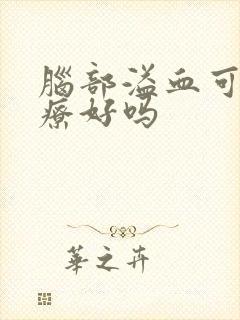 腦部溢血可
療好吗
華之卉